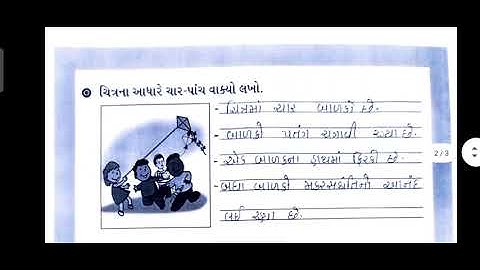 ચિત્રના આધારે ચાર-પાંચ વાક્યો લખો.
- ચિત્રમાં ચાર બાળકો છે.
- બાળકો પતંગ ચગાવી રહ્યા છે.
- એક બાળકના હાથમાં ફિરકી છે.
- બધા બાળકો મકરસક્રાંતિનો આનંદ
લઈ રહ્યા છે.
2/3